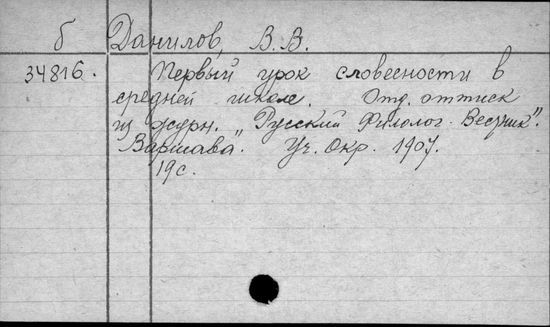 б Данилов, В. В.
34816. Первый урок словесности в
средней школе. Отд. оттиск
из журн. "Русский Филолог. Вестник".
Варшава". Уч. Окр. 1907.
19с.